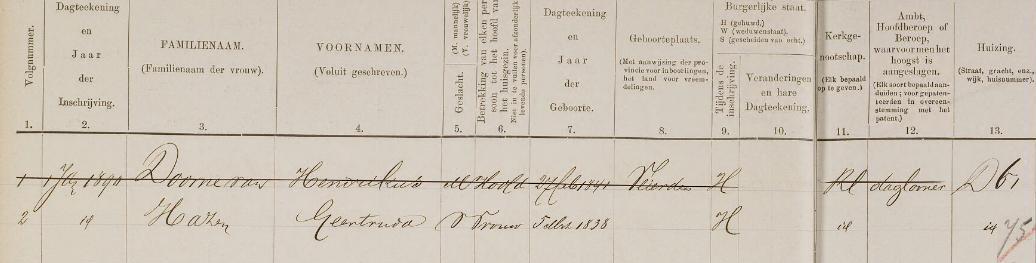 Volgnummer.
Dagteekening
en
Jaar
der
Inschrijving.
FAMILIENAAM.
(Familienaam der vrouw).
VOORNAMEN.
(Voluit geschreven.)
(M. mannelijk)
(V. vrouwelijk)
Geslacht.
Betrekking van elken persoon tot het hoofd van het huisgezin.
Dagteekening
en
Jaar
der
Geboorte.
Geboorteplaats.
(Met aanwijzing der provincie voor inboorlingen, het land voor vreemdelingen.
Burgerlijke staat.
H (gehuwd.)
W (weduwenstaat).
S (gescheiden van echt.)
Tijdens de inschrijving.
Veranderingen
en hare
Dagteekening.
Kerkgenootschap.
(Elk bepaald op te geven.)
Ambt,
Hoofdberoep of
Beroep,
waarvoor men het
hoogst is
aangeslagen.
(Elk soort bepaald aanduiden; voor gepatenteerden in overeenstemming met het patent.)
Huizing.
(Straat, gracht, enz., wijk, huisnummer.)
1. 2. 3. 4. 5. 6. 7. 8. 9. 10. 11. 12. 13.
1 1 Jan 1890 Doorne van Hendrikus M Hoofd H daglooner D 61
2 id Hazen Geertruda V Vrouw 1838 H id id 75